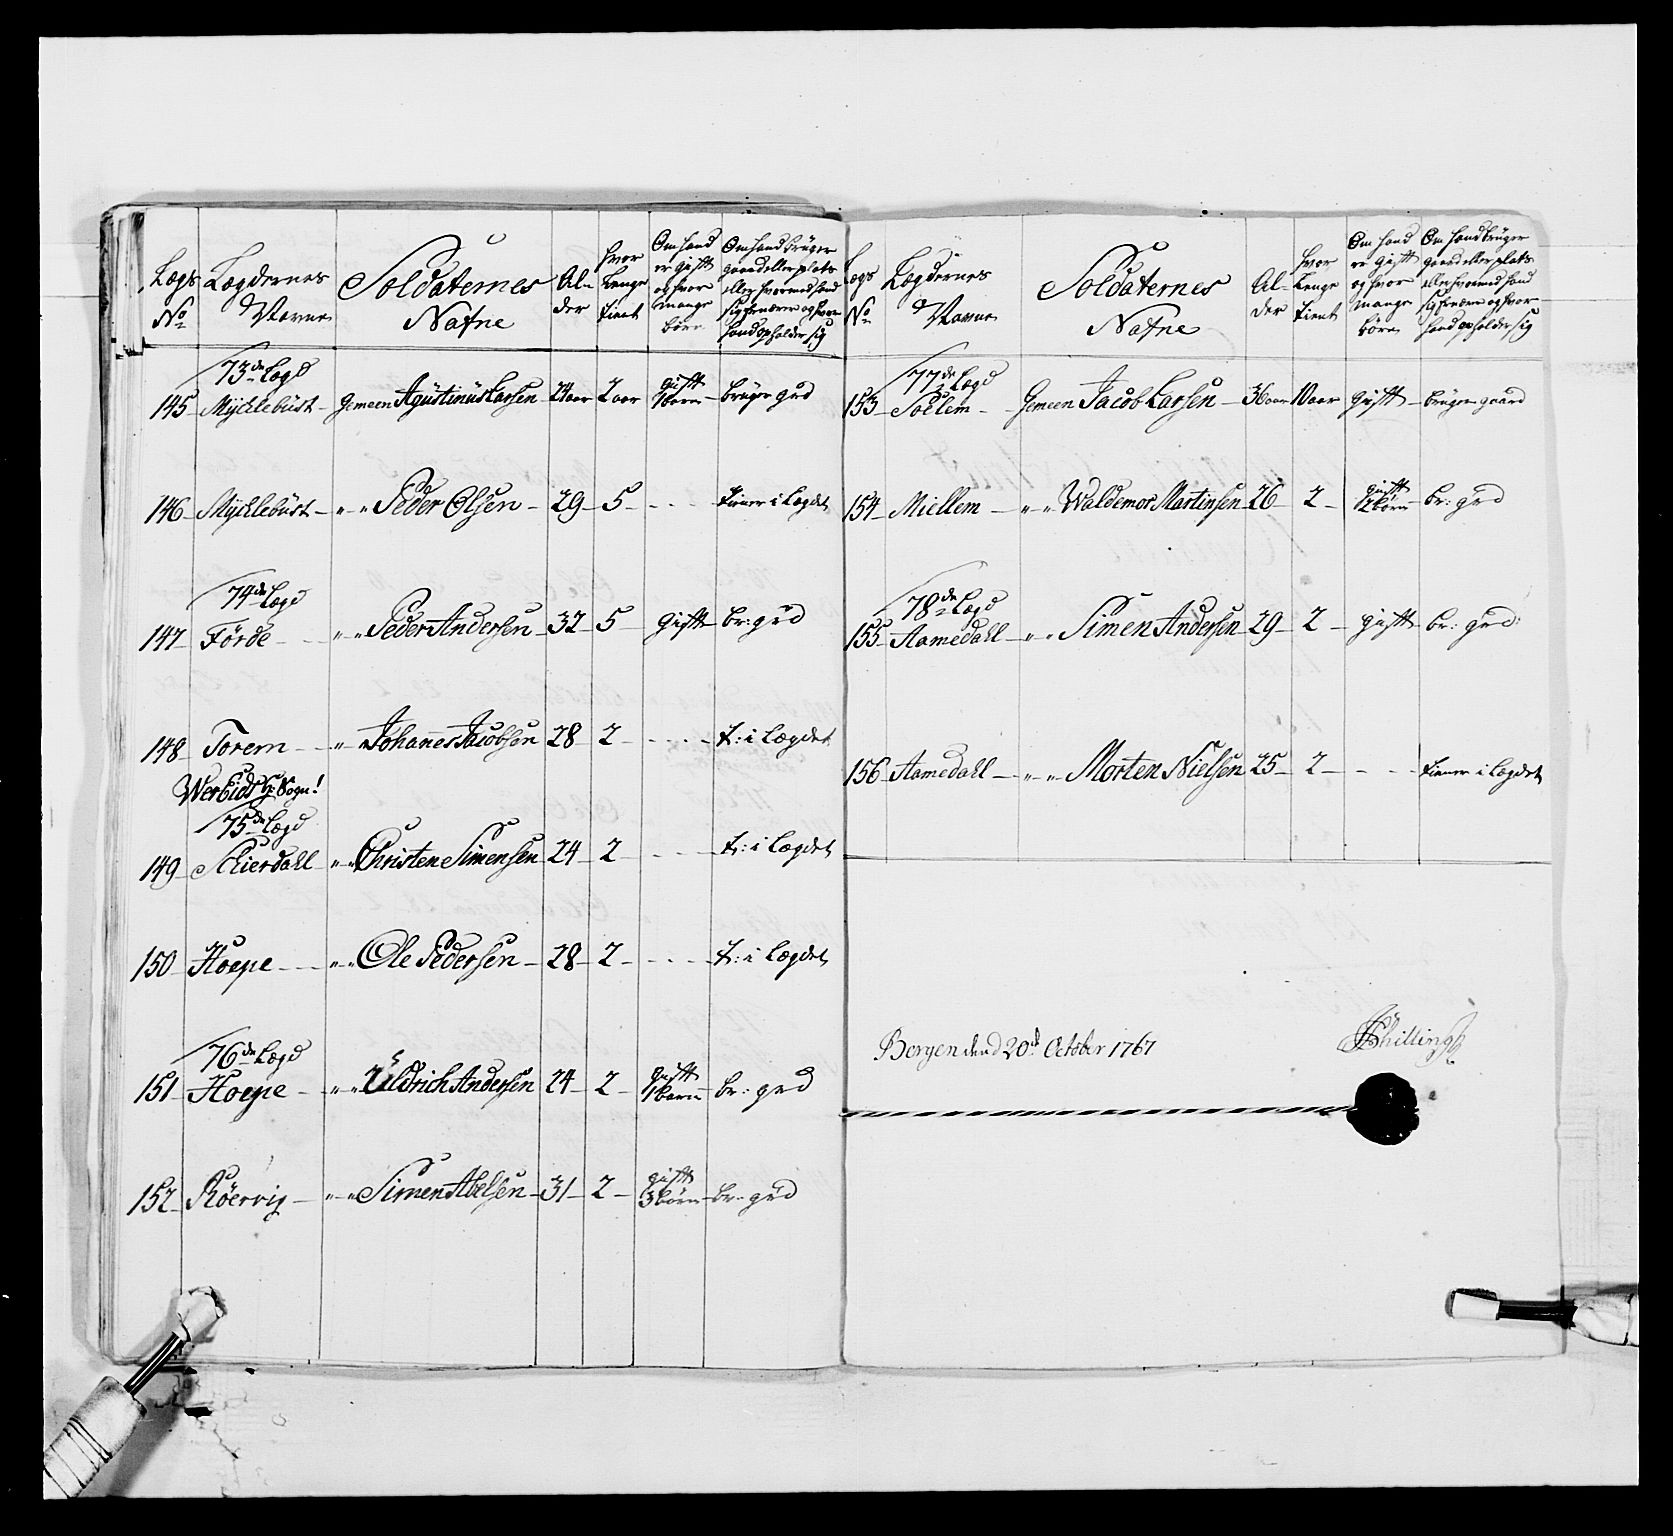 Lægs No
Lægdernes Navne
Soldaternes Nafne
Alder
hvor Lenge tient
Om hand er gift og hvor mange börn
Om hand brüger gaard eller plats eller hvormed hand sig ernærer og hvor hand opholder sig
73de Lægd
145 Myklebüst - Gemeen Agüstinüs Larsen 24 aar 2 aar gift 1 barn brüger grd
146 Myklebüst - " " Peder Olsen - 29 - 5 - - - - tiener i Lægdet
74de Lægd
147 Förde - " " Peder Andersen 32 5 gift br: grd
148 Torem - " Johannes Jacobsen 28 2 - - - - t: i Lægdet
Werëids Sogn!
75de Lægd
149 Schierdahl " " Christen Simensen 24 2 - - - - t: i Lægdet
150 Hoepe - " " Ole Pedersen - 28 2 - - - - t: i Lægdet
76de Lægd
151 Hoepe - " " Uldrich Andersen 24 2 gift 1 barn br: grd
152 Röervig - " " Simen Abelsen 31 2 gift 3 börn br: grd
Lægs No
Lægdernes Navne
Soldaternes Nafne
Alder
hvor Lenge tient
Om hand er gift og hvor mange börn
Om hand brüger gaard eller plats eller hvormed hand sig ernærer og hvor hand opholder sig
77de Lægd
153 Solem - Gemeen Jacob Larsen - 36 aar 10 aar gift - brüger gaard
154 Miellem - " " Waldemor Martinsen 26 2 gift 2 börn br: grd
78de Lægd
155 Aamedahl - " " Simen Andersen 29 - 2 - gift br: grd:
156 Aamedahl - " " Morten Nielsen 25 2 - - - tiener i Lægdet
Bergen dend 20de October 1767
Schilling